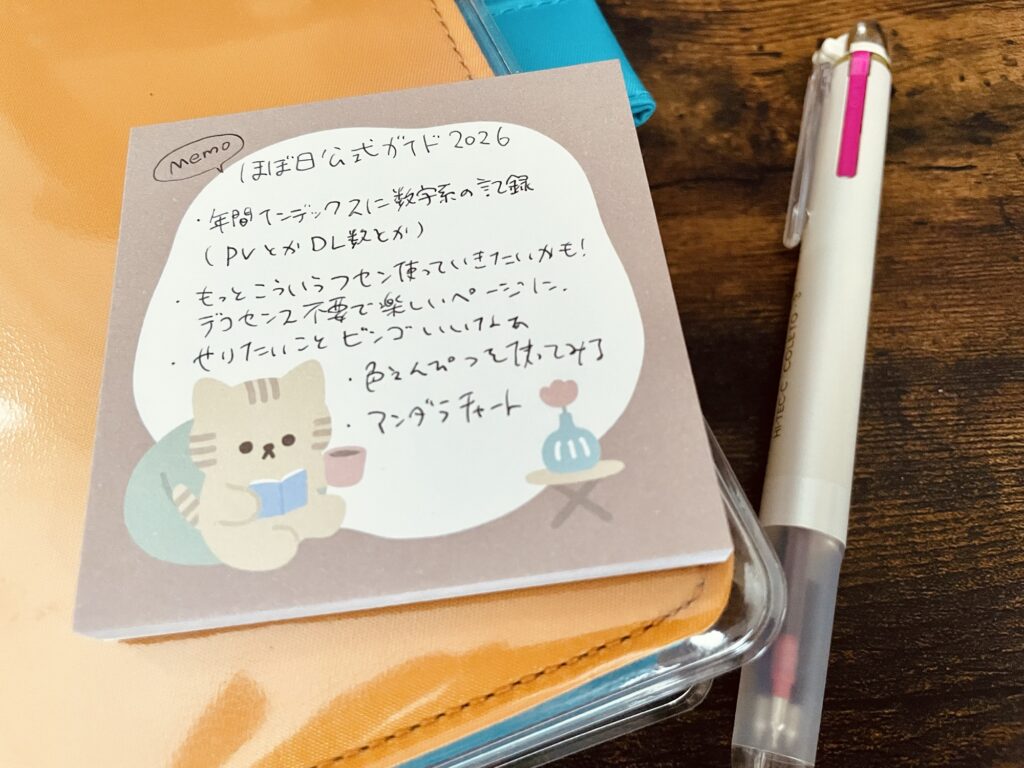 memo
ほぼ日公式ガイド2026
・年間インデックスに数字系の記録
(PVとかDL数とか)
・もっとこういうフセン使っていきたいかも!
デコセンス不要で楽しいページに.
・やりたいこと ビンゴ いいなぁ
・色えんぴつを使ってみる
・マンダラチャート
HI-TEC-C COLETO